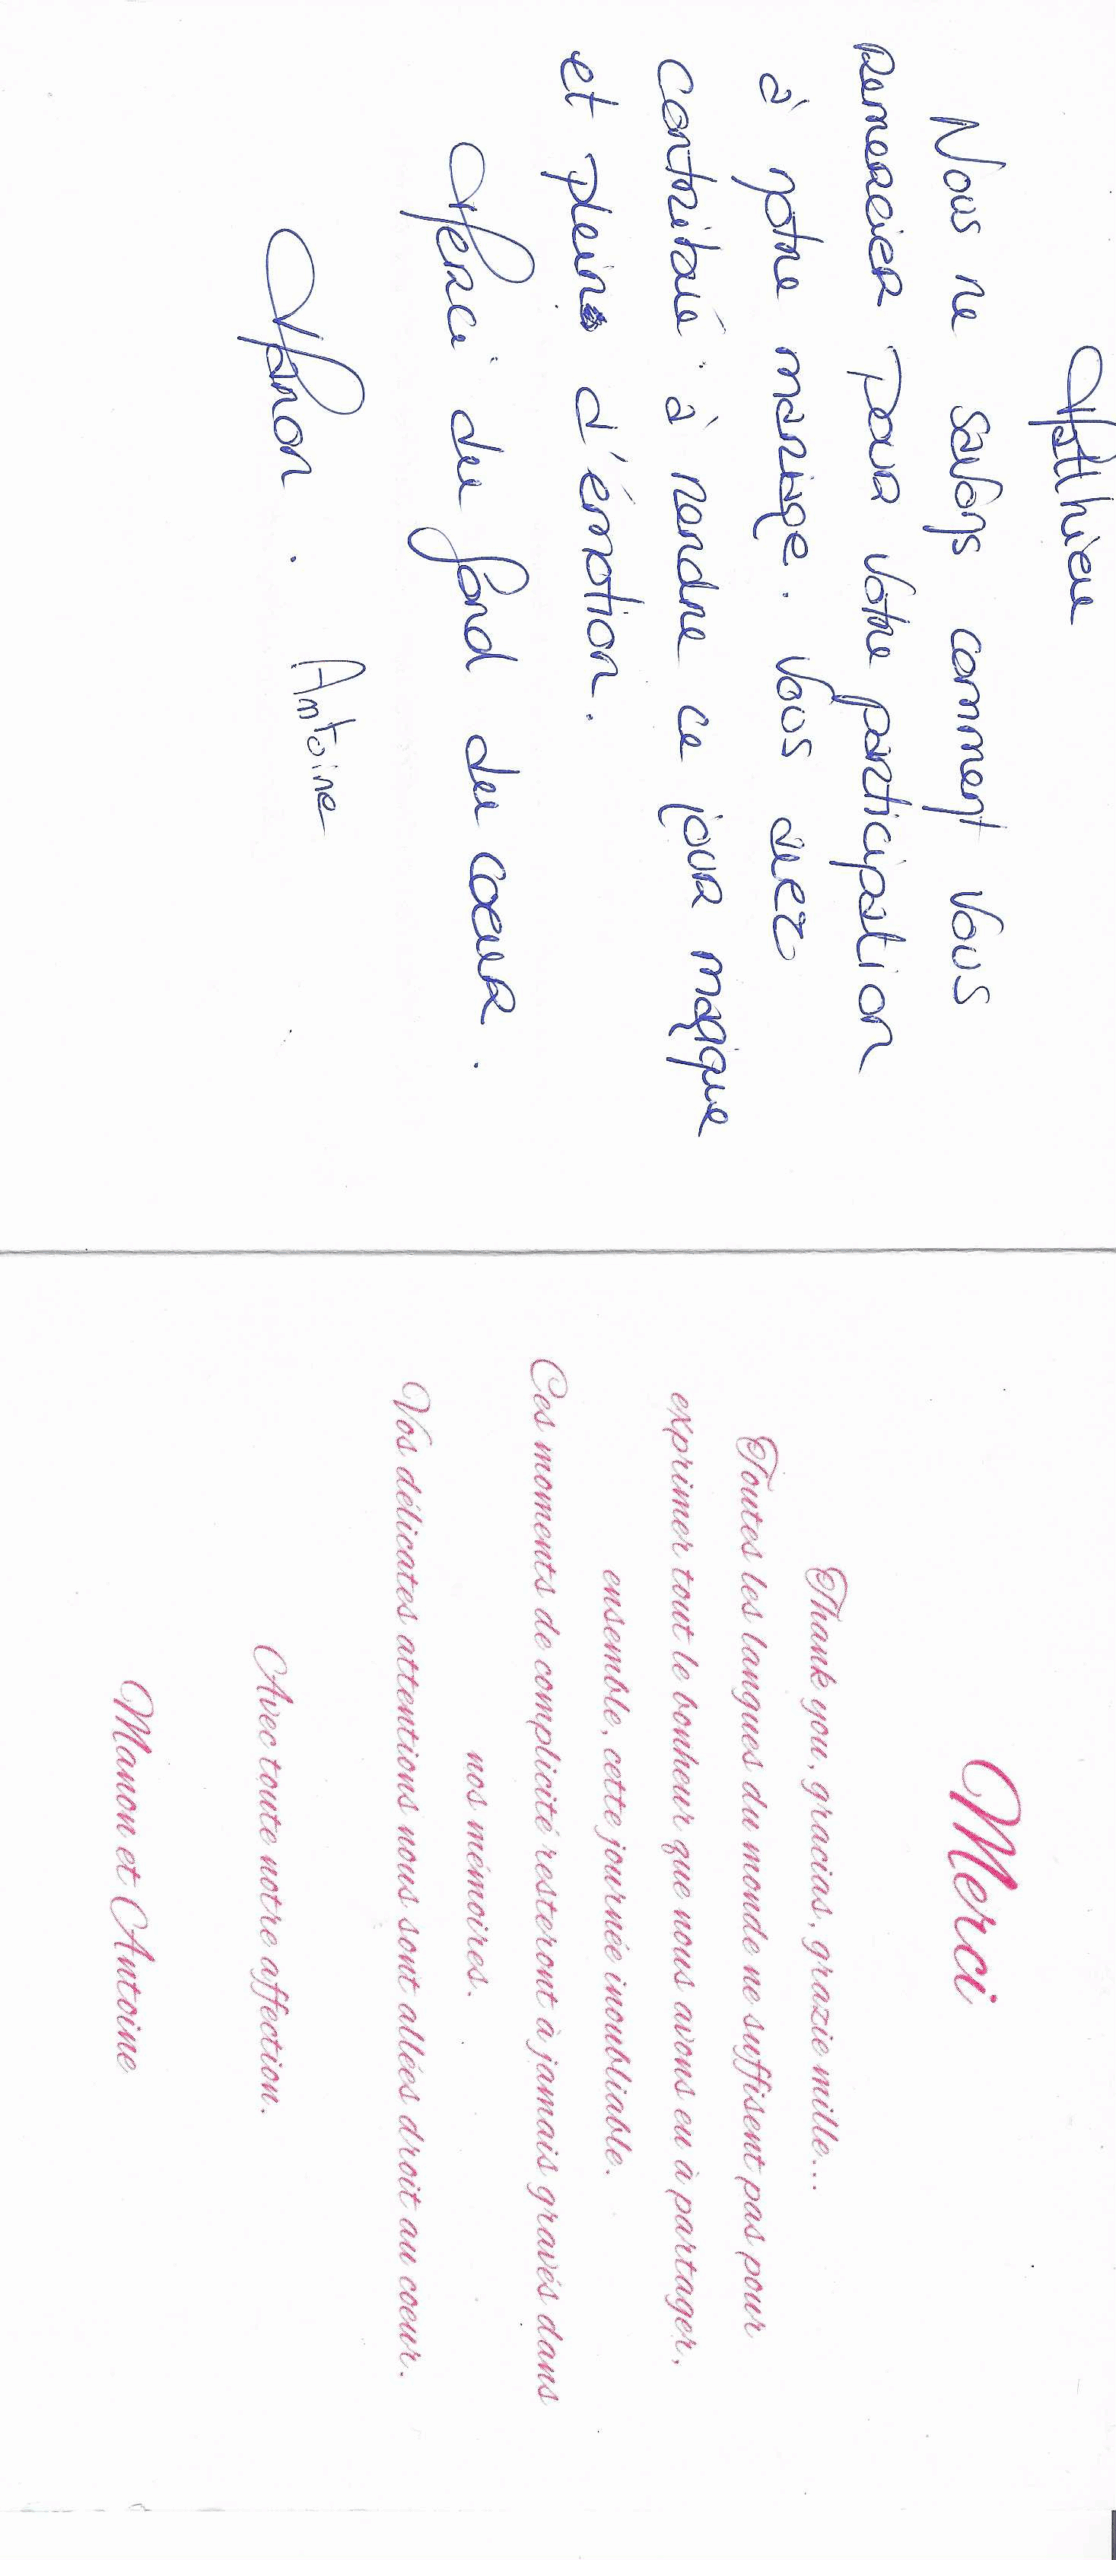 Matthieu
Nous ne savons comment vous
remercier pour votre participation
à notre mariage. Vous avez
contribué à rendre ce jour magique
et plein d'émotion.
Merci du fond du coeur.
Manon. Antoine
Merci
Thank you, gracias, grazie mille...
Toutes les langues du monde ne suffisent pas pour
exprimer tout le bonheur que nous avons eu à partager,
ensemble, cette journée inoubliable.
Ces moments de complicité resteront à jamais gravés dans
nos mémoires.
Vos délicates attentions nous sont allées droit au coeur.
Avec toute notre affection.
Manon et Antoine